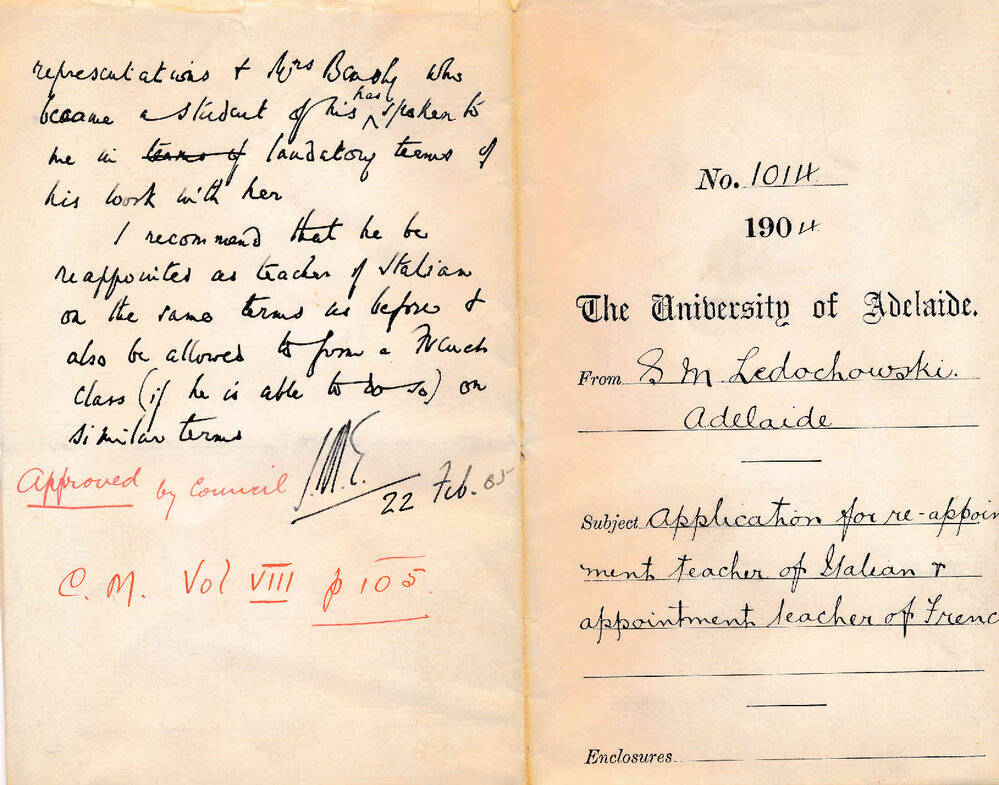 representations & Mrs Beasly who
became a student of his has spoken to
me in terms of laudatory terms of
his work with her
I recommend that he be
reappointed as teacher of Italian
on the same terms as before &
also be allowed to form a French
class (if he is able to do so) on
similar terms
Approved by Council
22 Feb. 05
C. M. Vol VIII p 105.
No. 1014
1904
The University of Adelaide.
From S M Ledochowski.
Adelaide
Subject Application for re-appoin
ment teacher of Italian &
appointment teacher of Frenc
Enclosures